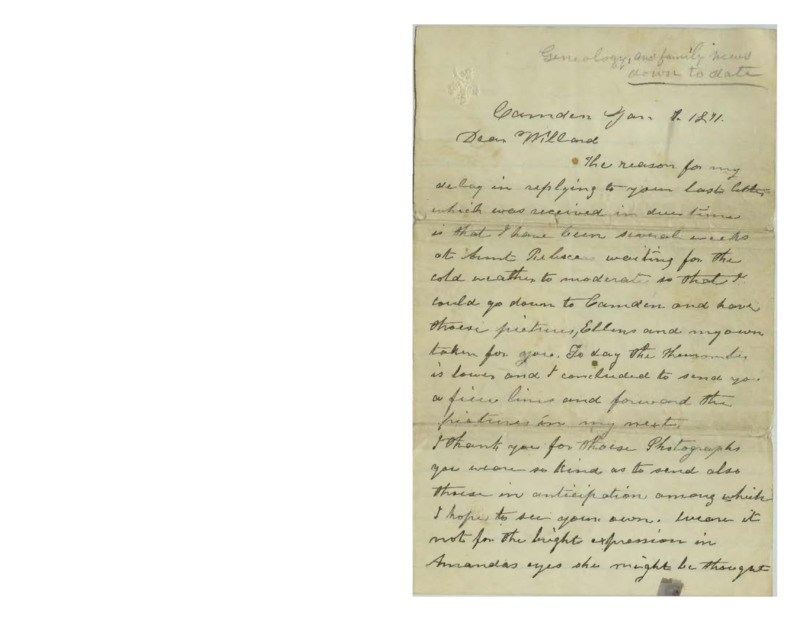 Geneology, and family news
down to date
Camden Jan 7. 1871.
Dear Willard
The reason for my
delay in replying to your last letter
which was received in due time
is that I have been several weeks
at Aunt Rebecca waiting for the
cold weather to moderate so that I
could go down to Camden and have
thoese pictures, Ellens and my own
taken for you. To day the thermometer
is lower and I concluded to send you
a fiew lines and forward the
pictures in my next.
I thank you for thoese Photographs
you weare so kind as to send also
thoese in anticipation among which
I hope to see your own. Weare it
not for the bright expression in
Amandas eyes she might be thought